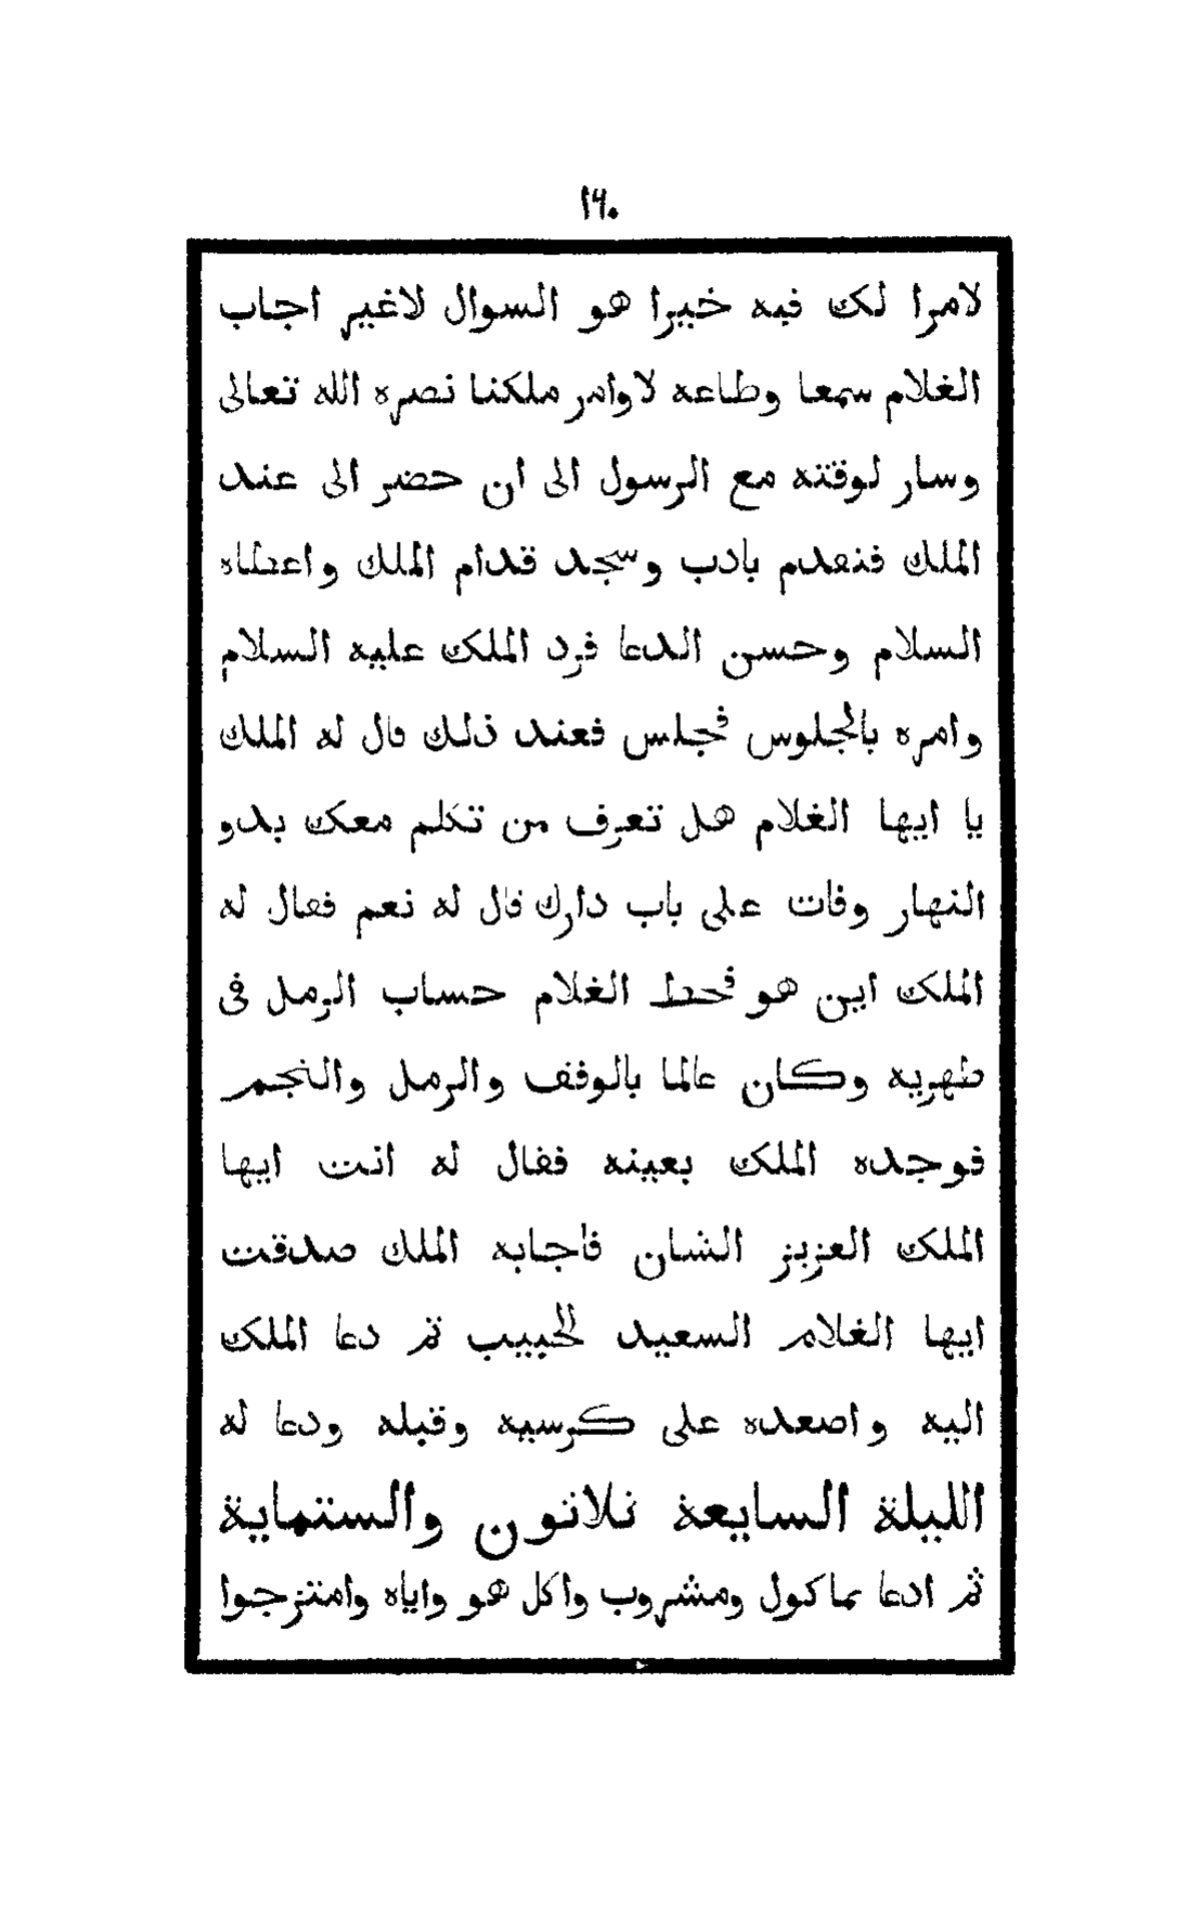 ١٦٠
لامرا لك فيه خيرا هو السوال لاغير اجاب
الغلام سمعا وطاعه لاوامر ملكنا نصره الله تعالى
وسار لوقته مع الرسول الى ان حضر الى عند
الملك فتقدم بادب وسجد قدام الملك واعطاه
السلام وحسن الدعا فرد الملك عليه السلام
وامره بالجلوس فجلس فعند ذلك قال له الملك
يا ايها الغلام هل تعرف من تكلم معك بدو
النهار وفات على باب دارك قال له نعم فقال له
الملك اين هو فحط الغلام حساب الرمل فى
طهريه وكان عالما بالوفف والرمل والنجمر
فوجده الملك بعينه فقال له انت ايها
الملك العزيز الشان فاجابه الملك صدقت
ايها الغلام السعيد الحبيب ثم دعا الملك
اليه واصعده على كرسيه وقبله ودعا له
الليلة السابعة ثلاثون والستماية
ثم ادعا بماكول ومشروب واكل هو واياه وامتزجوا